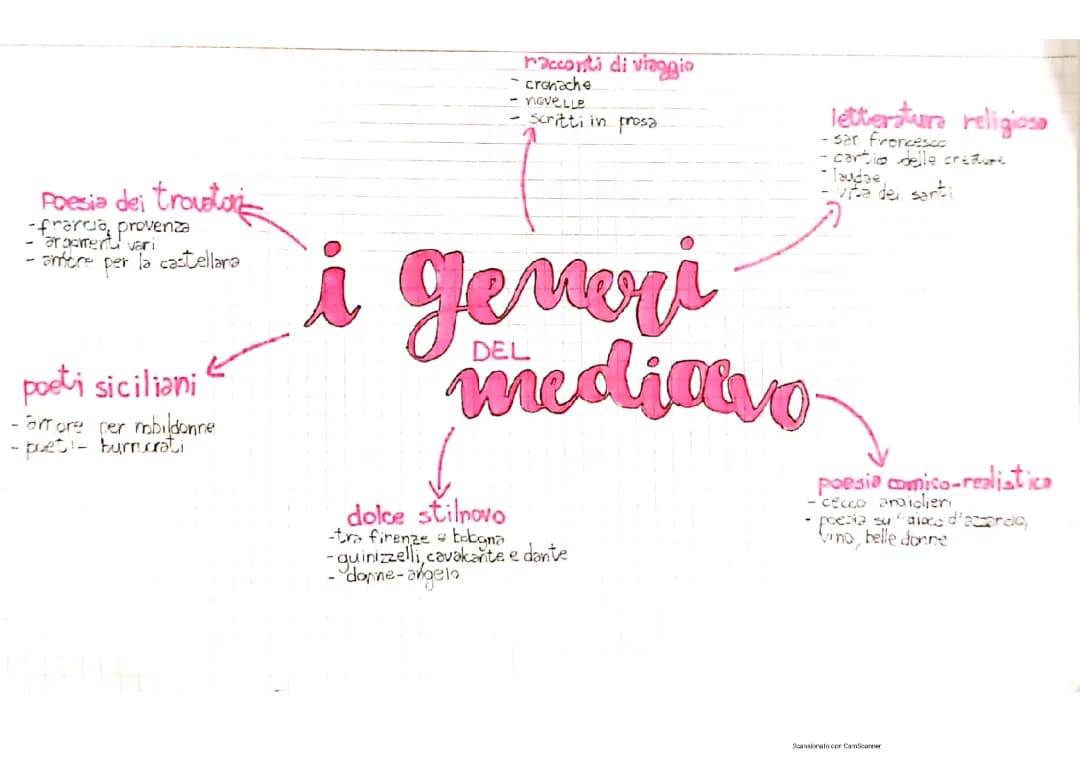 racconti di viaggio
- cronache
- novelle
- scritti in prosa
letteratura religiosa
- san francesco
- cantio delle creature
- laudae
- vita dei santi
Poesia dei trovatori
- francia, provenza
- argomenti vari
- amore per la castellana
i generi
DEL
medioevo
poeti siciliani
- amore per nobildonne
- poeti - burrucrati
dolce stilnovo
- tra firenze e bologna
- guinizzelli, cavalcante e dante
- donne-angelo
poesia comico-realistica
- cecco angiolieri
- poesia su gioco d'azzardo,
vino, belle donne
Scansionato con CamScanner